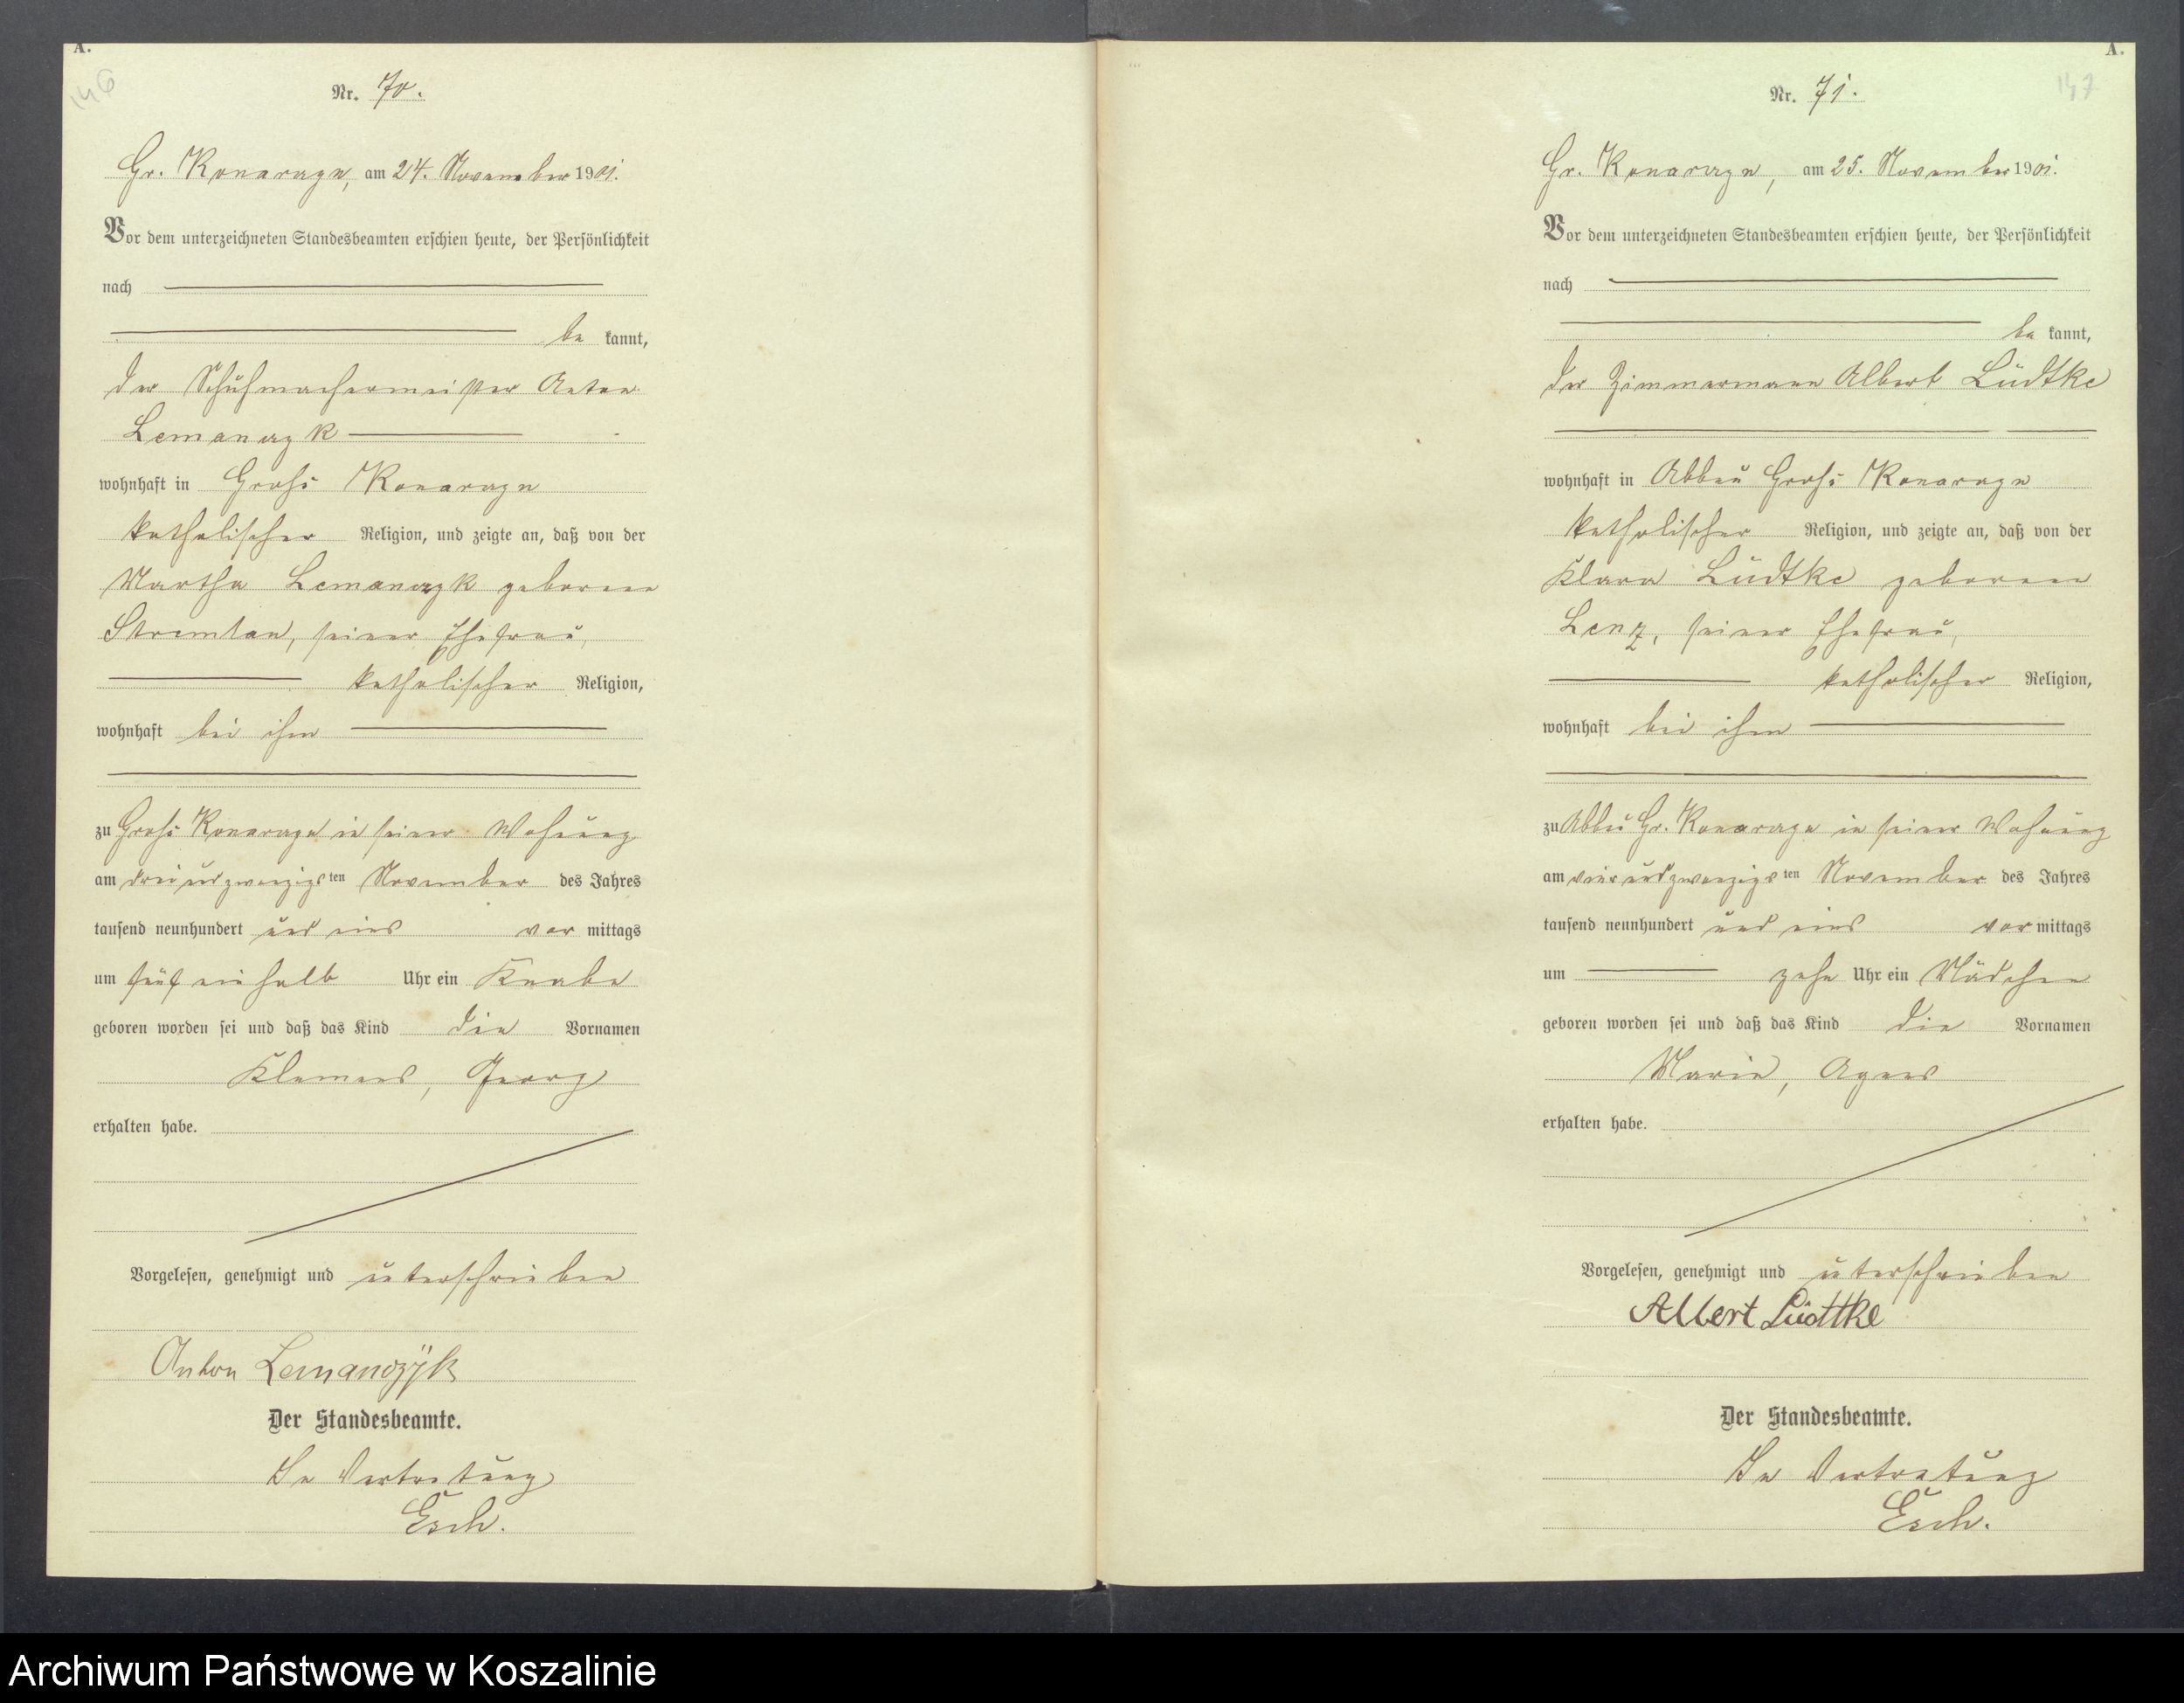 A.
146
Nr. 70.
Gr. Konarczyn, am 24. November 1901.
Vor dem unterzeichneten Standesbeamten erschien heute, der Persönlichkeit
nach
be kannt,
der Schuhmachermeister Anton
Lemanczyk
wohnhaft in Groß Konarczyn
katholischer Religion, und zeigte an, daß von der
Martha Lemanczyk geborenen
seiner Ehefrau,
katholischer Religion,
wohnhaft bei ihm
zu Groß Konarczyn in seiner Wohnung
am drei und zwanzigsten November des Jahres
tausend neunhundert und eins vor mittags
um fünf ein halb Uhr ein Knabe
geboren worden sei und daß das Kind die Vornamen
Klemens, Georg
erhalten habe.
Vorgelesen, genehmigt und unterschrieben
Anton Lemanczÿk
Der Standesbeamte.
In Vertretung
Esch.
A.
147
Nr. 71.
Gr. Konarczyn, am 25. November 1901.
Vor dem unterzeichneten Standesbeamten erschien heute, der Persönlichkeit
nach
be kannt,
der Zimmermann Albert Lüdtke
wohnhaft in Abbau Groß Konarczyn
katholischer Religion, und zeigte an, daß von der
Klara Lüdtke geborenen
Lenz, seiner Ehefrau,
katholischer Religion,
wohnhaft bei ihm
zu Abbau Gr. Konarczyn in seiner Wohnung
am vier und zwanzigsten November des Jahres
tausend neunhundert und eins vor mittags
um zehn Uhr ein Mädchen
geboren worden sei und daß das Kind die Vornamen
Marie, Agnes
erhalten habe.
Vorgelesen, genehmigt und unterschrieben
Albert Lüdttke
Der Standesbeamte.
In Vertretung
Esch.
Archiwum Państwowe w Koszalinie